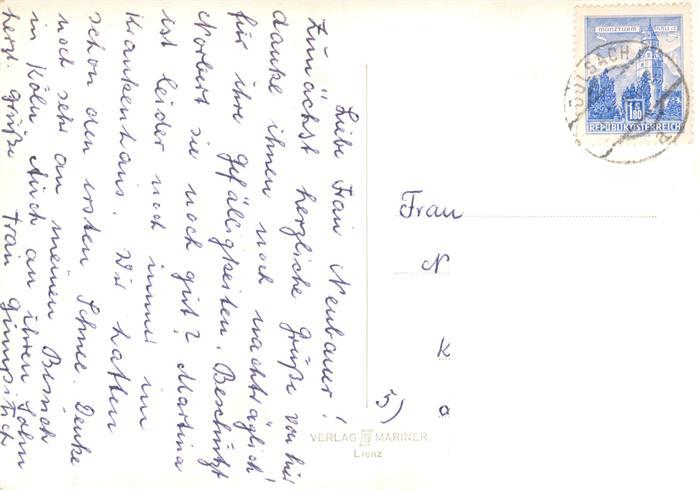 Liebe Frau Neubauer!
Zunächst herzliche Grüße von hier
danke ihnen noch nachträglich
für ihre Gefälligkeiten. Beschützt
Norbert sie noch gut? Martina
ist leider noch immer im
Krankenhaus. Wir hatten
schon den ersten Schnee. Denke
noch sehr an meinen Besuch
in Köln. Auch an ihren Sohn
herzl. Grüße Frau
Frau
N
K
5) a
VERLAG MARINER
Lienz
MÜNZTURM HALL i.T.
1.80
REPUBLIK ÖSTERREICH